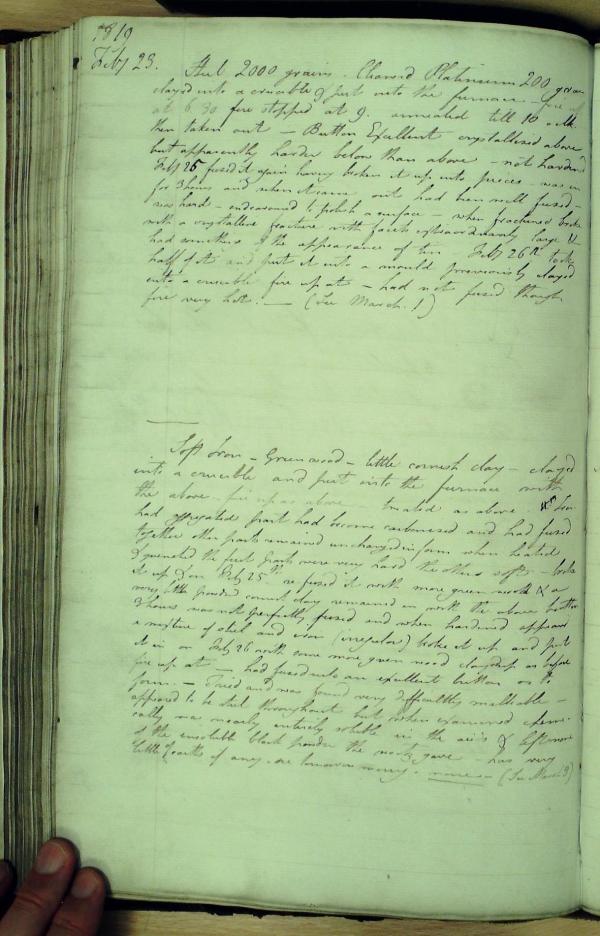 1819
Feby 23. Steel 2000 grains. Cleansed Platinum 200 grains
clayed into a crucible & put into the furnace - fire up
at 6.30 fire stopped at 9. annealed till 10 o'clk.
then taken out - Button Excellent crystallised above
but apparently harder below than above - not hardened
Feby 25 fused it again having broken it up into pieces - was in
for 3 hours and when it came out had been well fused -
was hard - endeavoured to polish a surface - when fractured broke
with a crystalline fracture with facets extraordinarily large &
had somewhat of the appearance of Feby 26th took
half of it and put it into a mould previously clayed
into a crucible fire up at - had not fused though
fire very hot. - (See March. 1)
Soft Iron - Greenwood - little cornish clay - clayed
into a crucible and put into the furnace with
the above - fire up as above - treated as above. Iron
had aggregated part had become carbonised and had fused
together other parts remained unchanged in form when heated
& quenched the first parts were very hard the others soft - broke
it up & on Feby 25th re fused it with more green wood & a
very little powdered cornish clay remained in with the above button
3 hours was not perfectly fused and when hardened appeared
a mixture of steel and iron (irregular) broke it up and put
it in on Feby 26 with some more green wood clayed up as before
fire up at - had fused into an excellent button as to
form. - Tried and was found very difficultly malleable -
appeared to be steel throughout but when examined chemi-
cally was nearly entirely soluble in the acids & left none
of the insoluble black powder the gave - has very
little of earths of any. none - (See March 3)